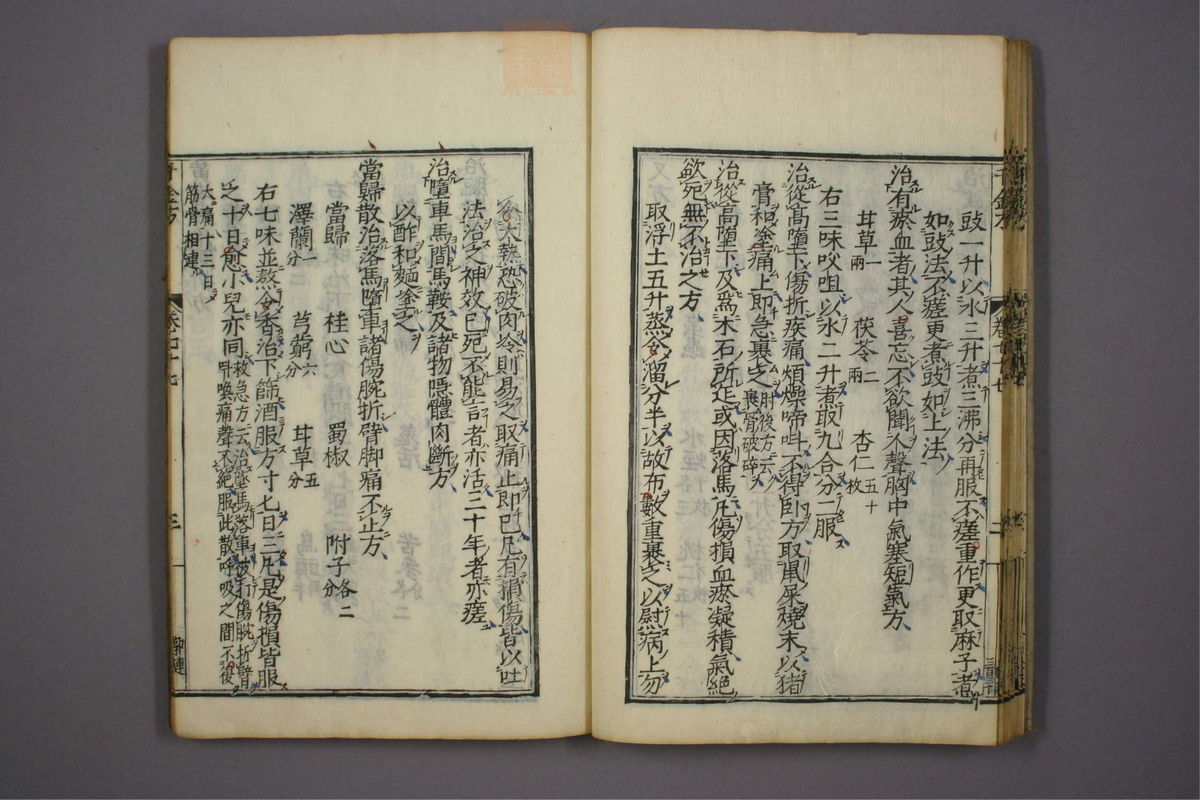 豉一升以水三升煮三沸分再服不瘥重作更取麻子煮
如豉法不瘥更煮豉如上法
治有瘀血者其人喜忘不欲聞人聲胸中氣塞短氣方
甘草一兩 茯苓二兩 杏仁五十枚
右三味㕮咀以水二升煮取九合分二服
治從高墮下傷折疾痛煩燥啼叫不得卧方取鼠屎燒末以猪
膏和塗痛上即急裹之肘後方云裹骨破碎
治從高墮下及爲木石所迮或因落馬凡傷損血瘀凝積氣絶
欲死無不治之方
取淨土五升蒸令溜分半以故布數重裹之以熨病上勿
令大熱恐破肉冷則易之取痛止即已凡有損傷皆以吐
法治之神效已死不能言者亦活三十年者亦瘥
治墮車馬間馬鞍及諸物隱體肉斷方
以酢和麵塗之
當歸散治落馬墮車諸傷腕折臂脚痛不止方
當歸 桂心 蜀椒 附子各二分
澤蘭一分 芎藭六分 甘草五分
右七味並熬令香治下篩酒服方寸七日三凡是傷損皆服
之十日愈小兒亦同救急方云治墜馬落車被打傷腕折臂呌喚痛聲不絶服此散呼吸之間不復
大痛十三日筋骨相連
千金方 卷二十七 三
二
zysj.com.cn